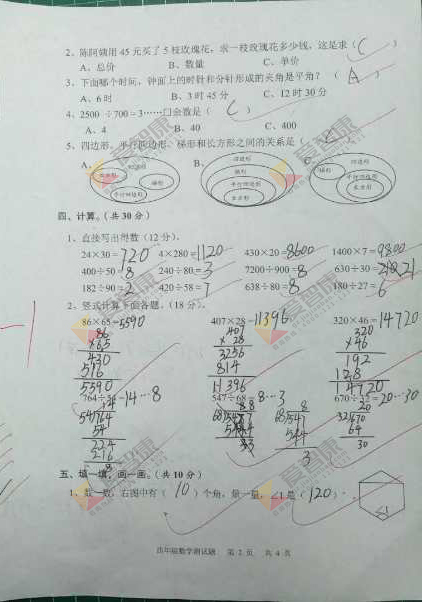 2、陈阿姨用 45 元买了 5 枝玫瑰花，求一枝玫瑰花多少钱，这是求（ C ）
A、总价 B、数量 C、单价
3、下面哪个时间，钟面上的时针和分针形成的夹角是平角？（ A ）
A、6时 B、3时45分 C、12时30分
4、2500 ÷700＝3……□余数是（ C ）
A、4 B、40 C、400
5、四边形、平行四边形、梯形和长方形之间的关系是（ ）
A、 B、
四边形 四边形
梯形 梯形
平行四边形 平行四边形 平行四边形
四、计算。（共 30 分）
1、直接写出得数（12分）。
24×30＝720 4×280＝1120 430×20＝8600 1400×7＝9800
400÷50＝8 240÷80＝3 7200÷900＝8 630÷30＝21
182÷90≈2 420÷58≈7 638÷80≈8 180÷27≈6
2、竖式计算下面各题。（18分）
86×65＝5590 407×28＝11396 320×46＝14720
86 407 320
×65 ×28 ×46
430 3256 192
516 814 128
5590 11396 14720
764÷54＝14…8 547÷68＝8…3 670÷32＝20…30
14 8 20
54)764 68)547 32)670
54 544 64
224 3 30
216
8
五、填一填，画一画。（共 10 分）
1、数一数，右图中有（ 10 ）个角，量一量，∠1是（ 120 ）°
∠1
四年级数学测试题 第 2 页 共 4 页
智康